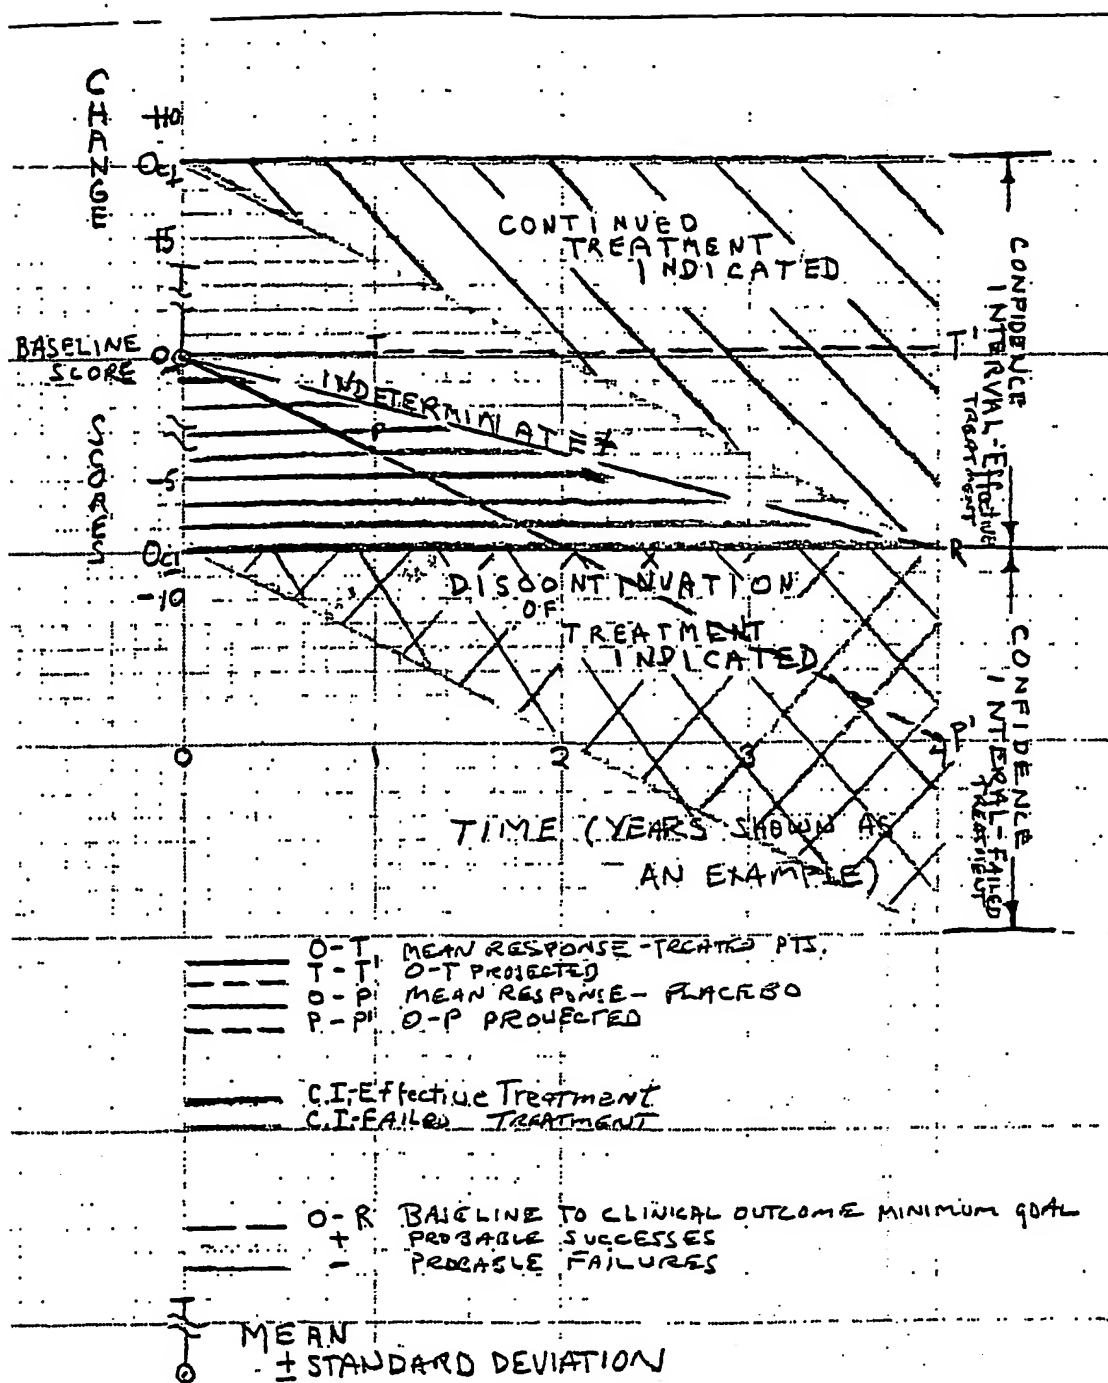 CHANGE SCORES
+10
OCI+
+5
BASELINE
SCORE
O
-5
OCI-
-10
CONTINUED
TREATMENT
INDICATED
T
T'
INDETERMINATE
P
R
DISCONTINUATION
OF
TREATMENT
INDICATED
P'
CONFIDENCE
INTERVAL-Effective
TREATMENT
CONFIDENCE
INTERAL-FAILED
TREATMENT
0 1 2 3
TIME (YEARS SHOWN AS
AN EXAMPLE)
O-T MEAN RESPONSE-TREATED PTS.
T-T' O-T PROJECTED
O-P MEAN RESPONSE- PLACEBO
P-P' O-P PROJECTED
C.I-Effective Treatment
C.I-FAILED TREATMENT
O-R BASELINE TO CLINICAL OUTCOME MINIMUM GOAL
+ PROBABLE SUCCESSES
- PROBABLE FAILURES
MEAN
± STANDARD DEVIATION